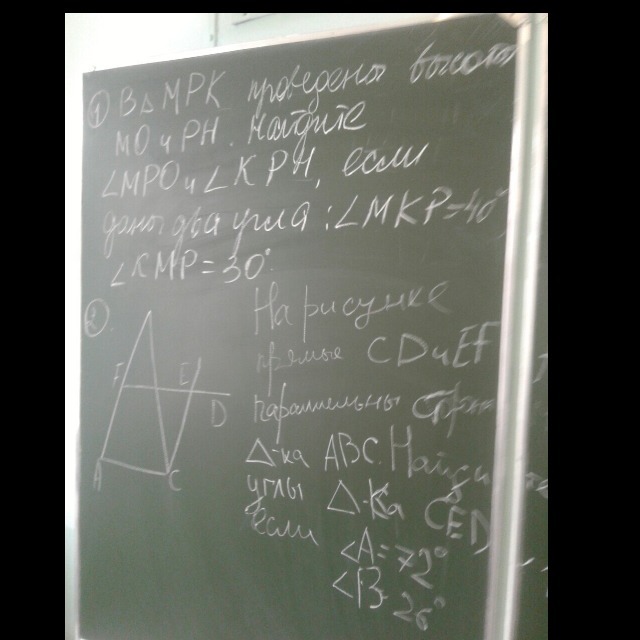 ① В △ MPK проведены высоты
MO и PH. Найдите
∠MPO и ∠KPH, если
даны два угла: ∠MKP=40°,
∠KMP=30°.
②
На рисунке
прямые CD и EF
параллельны
△-ка ABC. Найдите
углы △-ка CED
если
∠A=79°
∠B
F
E
D
A
C